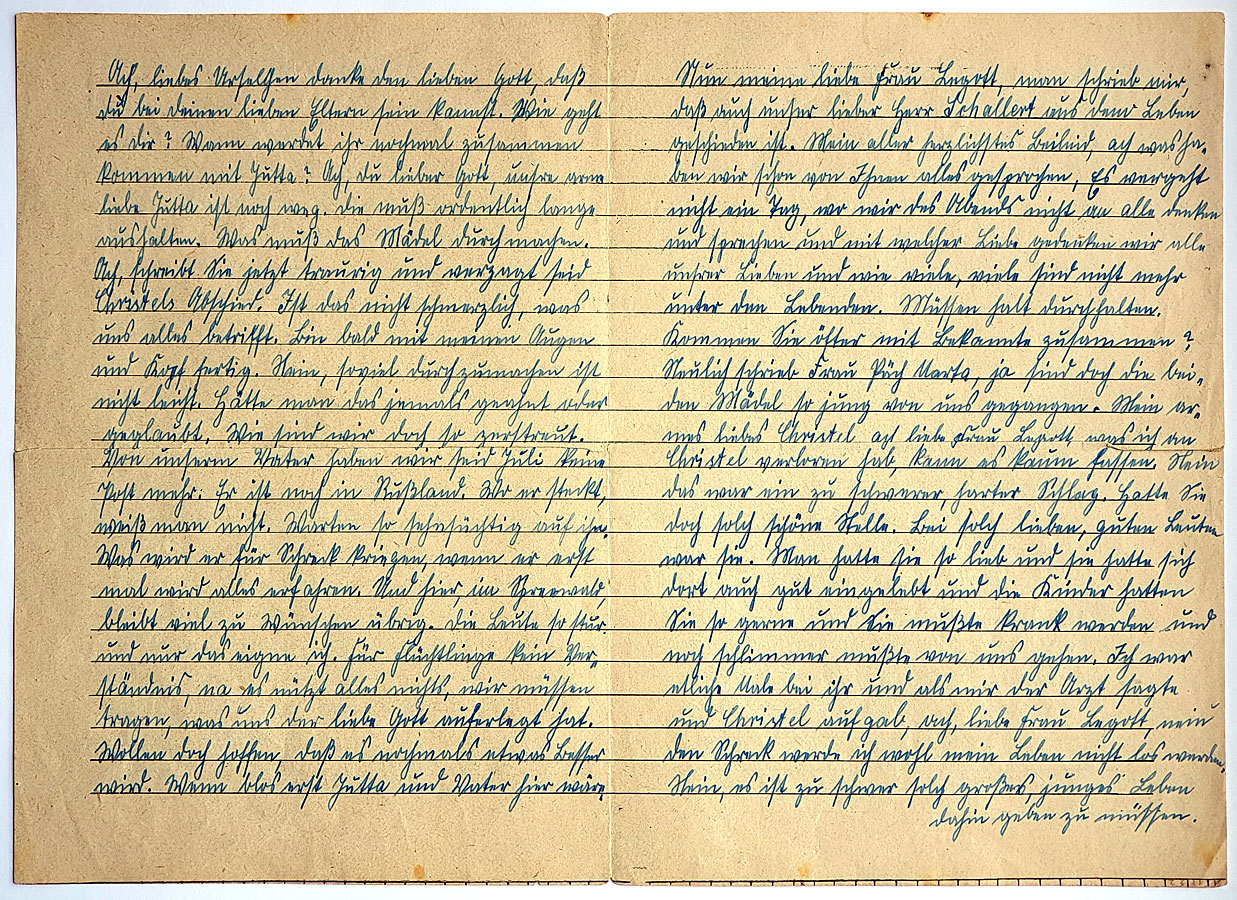 Ach, liebes Urselchen danke den lieben Gott, daß
du bei deinen lieben Eltern sein kannst. Wie geht
es dir? Wann werdet ihr nochmal zusammen
kommen mit Jutta? Ach, du lieber Gott, unsre arme
liebe Jutta ist noch weg. Die muß ordentlich lange
aushalten. Was muß das Mädel durchmachen.
Ach, schreibt Sie jetzt traurig und verzagt seid
Christels Abschied. Ist das nicht schmerzlich, was
uns alles betrifft. Bin bald mit meinen Augen
und Kopf fertig. Nein, soviel durchzumachen ist
nicht leicht. Hätte man das jemals geahnt oder
geglaubt. Wie sind wir doch so zerstreut.
Von unserm Vater haben wir seid Juli keine
Post mehr. Er ist noch in Rußland. Wo er steckt,
weiß man nicht. Warten so sehnsüchtig auf ihn.
Was wird er für Schreck kriegen, wenn er erst
mal wird alles erfahren. Und hier im Spreewald,
bleibt viel zu Wünschen übrig. Die Leute so stur
und nur das eigne ich. Für Flüchtlinge kein Ver-
ständnis, na es nützt alles nichts, wir müssen
tragen, was uns der liebe Gott auferlegt hat.
Wollen doch hoffen, daß es nochmals etwas Besser
wird. Wenn blos erst Jutta und Vater hier wäre
Nun meine liebe Frau Legott, man schrieb mir,
daß auch unser lieber Herr Schallert aus dem Leben
geschieden ist. Mein aller herzlichstes Beileid, ach was ha-
ben wir schon von Ihnen alles gesprochen, Es vergeht
nicht ein Tag, wo wir des Abends nicht an alle denken
und sprechen und mit welcher Liebe gedenken wir alle
unsrer Lieben und wie viele, viele sind nicht mehr
unter den Lebenden. Müssen halt durchhalten.
Kommen Sie öfter mit Bekannte zusammen?
Neulich schrieb Frau Päch Marta, ja sind doch die bei-
den Mädel so jung von uns gegangen. Mein ar-
mes liebes Christel ach liebe Frau Legott, was ich an
Christel verloren hab, kann es kaum fassen. Nein
das war ein zu schwerer, harter Schlag. Hatte Sie
doch solch schöne Stelle. Bei solch lieben, guten Leuten
war sie. Man hatte sie so lieb und sie hatte sich
dort auch gut eingelebt und die Kinder hatten
Sie so gerne und Sie mußte krank werden und
noch schlimmer mußte von uns gehen. Ich war
etliche Male bei ihr und als mir der Arzt sagte
und Christel aufgab, ach, liebe Frau Legott, nein
den Schreck werde ich wohl mein Leben nicht los werden.
Nein, es ist zu schwer solch großes, junges Leben
dahin geben zu müssen.